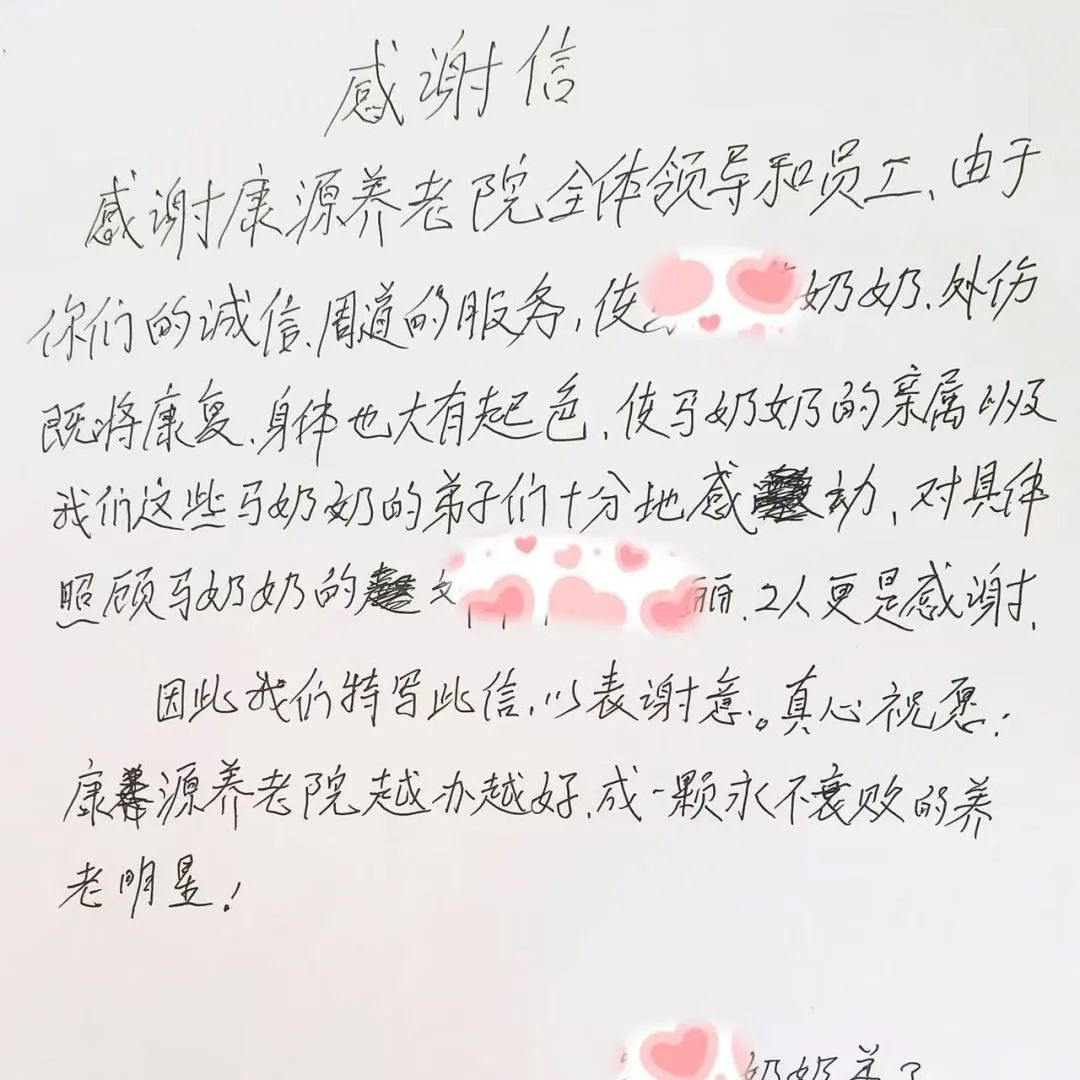 感谢信
感谢康源养老院全体领导和员工、由于
你们的诚信、周道的服务，使奶奶、外伤
既将康复、身体也大有起色，使马奶奶的亲属以及
我们这些马奶奶的弟子们十分地感动，对具体
照顾马奶奶的文丽、2人更是感谢，
因此我们特写此信，以表谢意。真心祝愿：
康源养老院越办越好，成一颗永不衰败的养
老明星！
奶奶